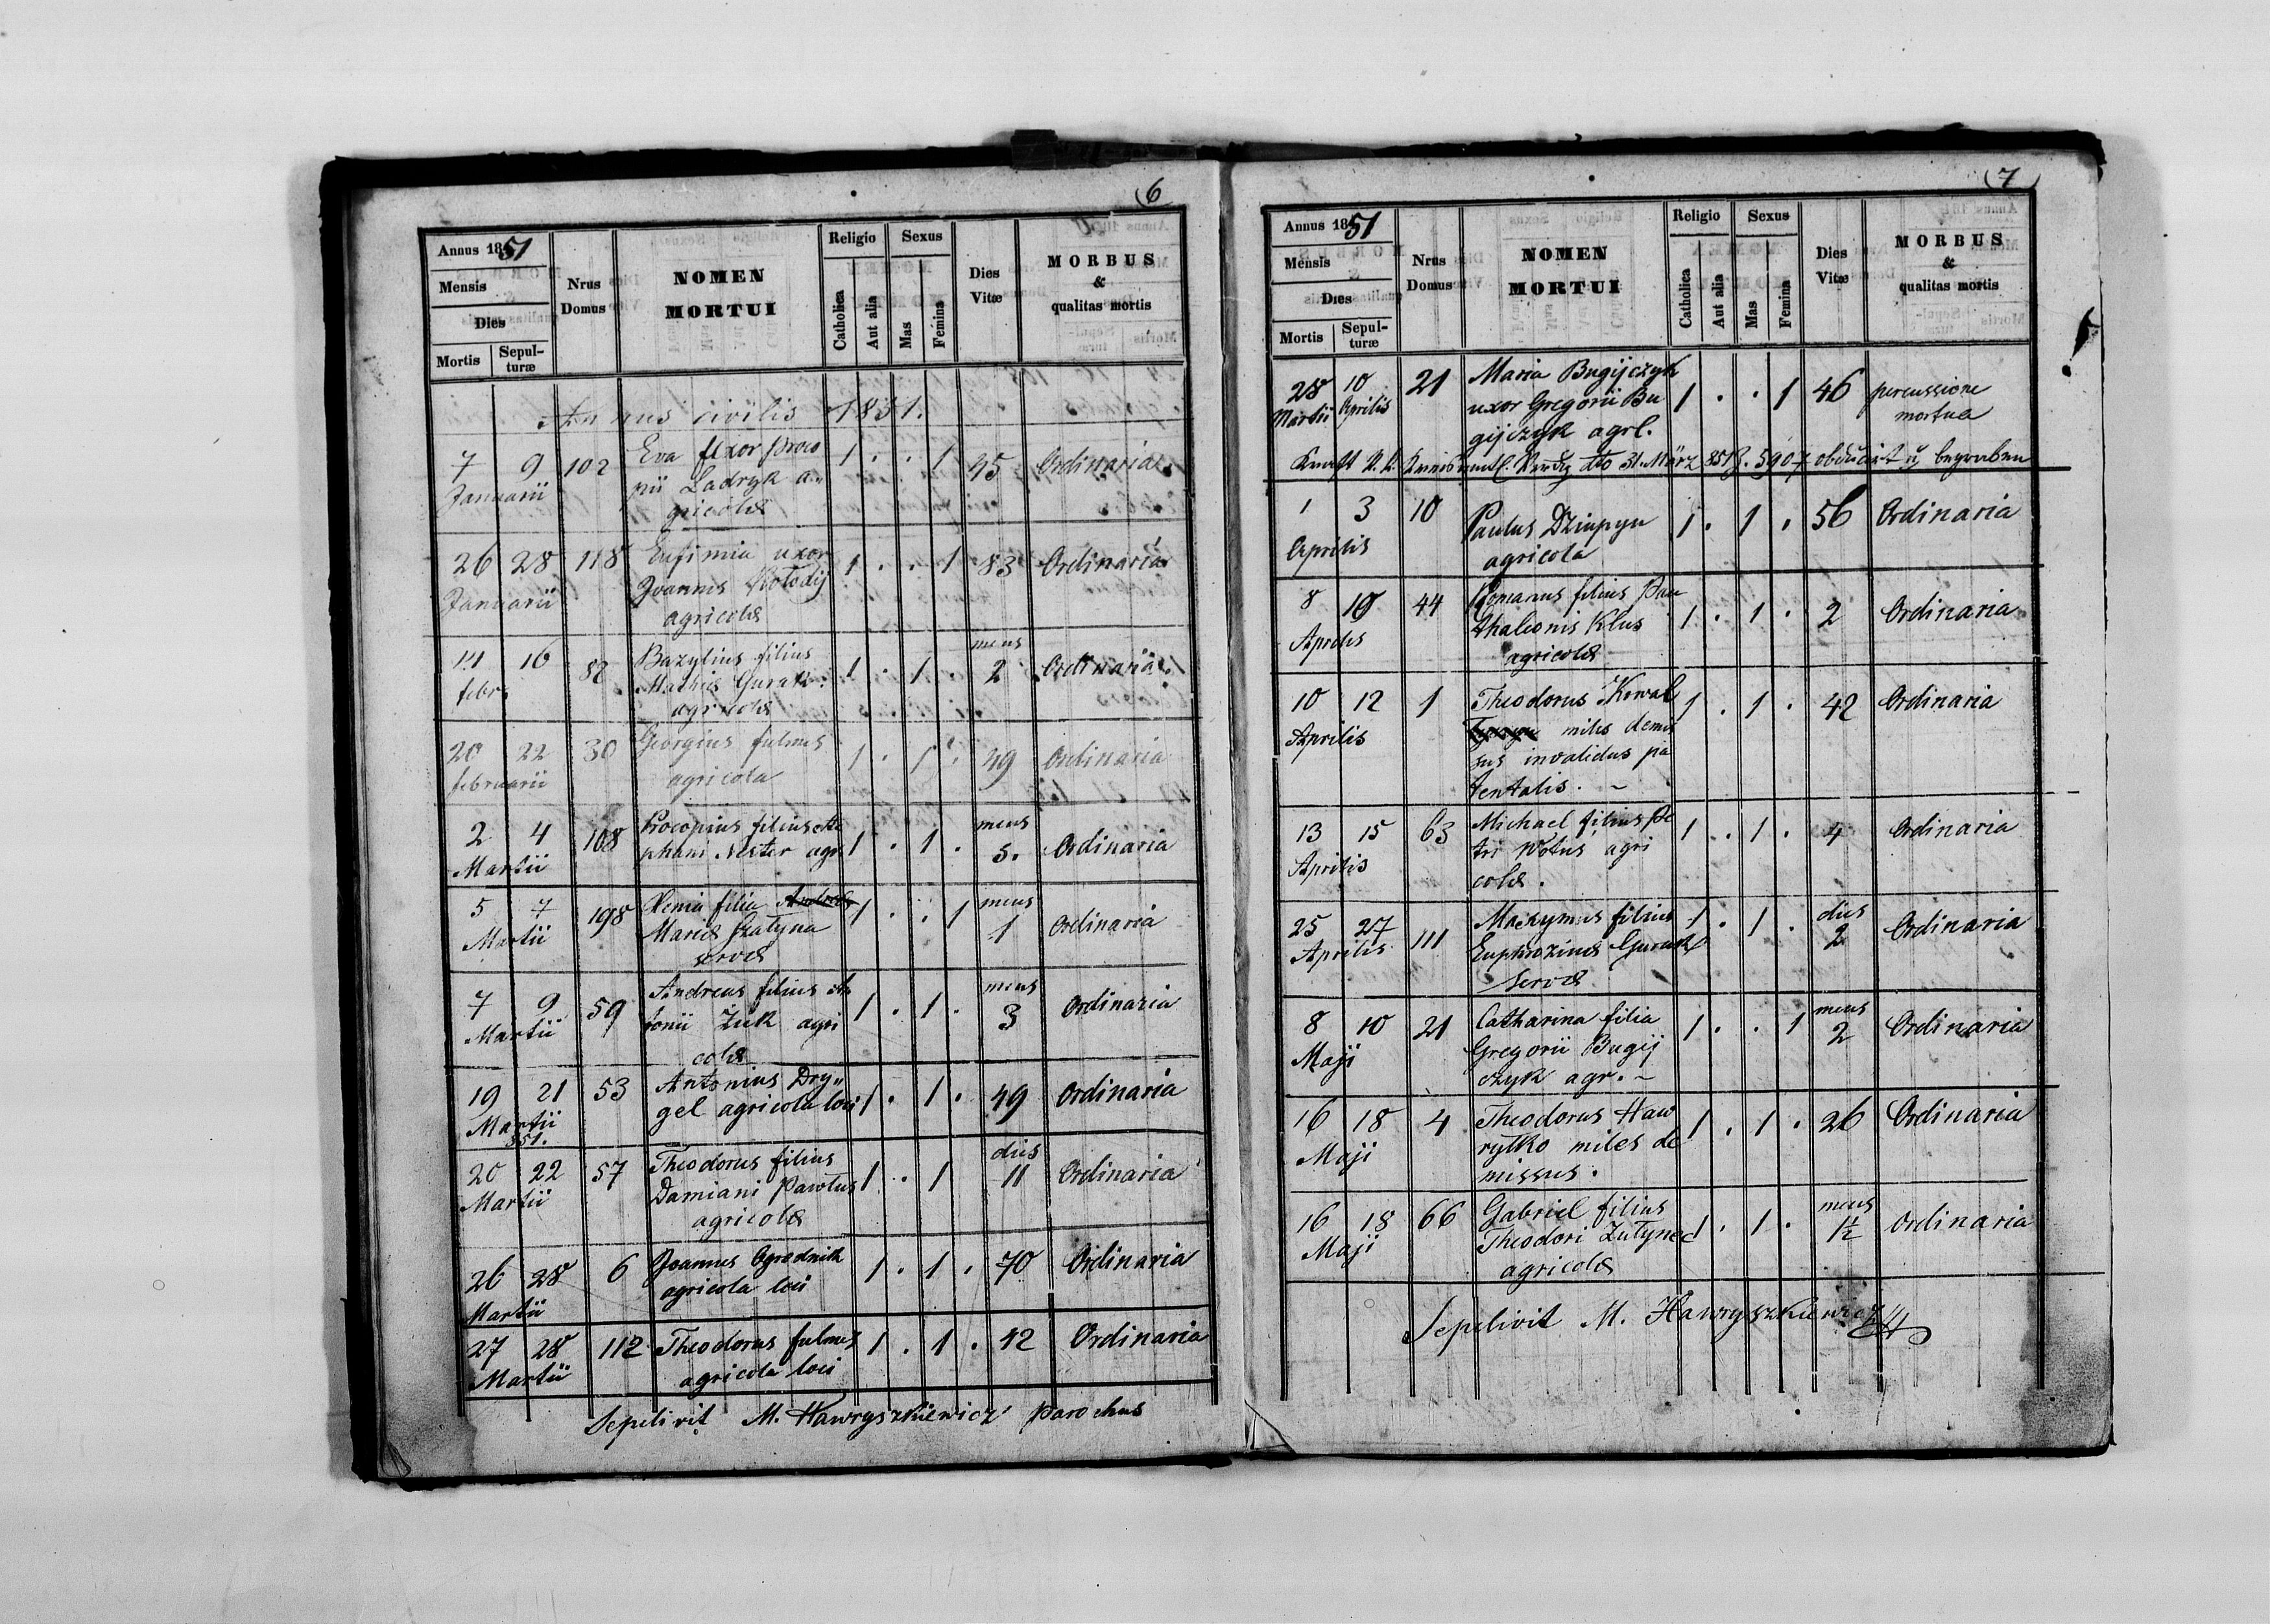 6
Annus 1851
Mensis
Dies
Mortis
Sepulturæ
Nrus Domus
NOMEN MORTUI
Religio
Catholica
Aut alia
Sexus
Mas
Femina
Dies Vitæ
MORBUS & qualitas mortis
Annus civilis 1851.
7 9 102 Eva uxor Proco 1 . . 1 45 Ordinaria
Januarii pii Ladryk a„
gricolæ
26 28 118 Eufimia uxor 1 . . 1 83 Ordinaria
Januarii Joannis Kołodij
agricolæ
14 16 82 Bazylius filius 1 . 1 . mens 2 Ordinaria
febr. Mathiæ Gurak
agricolæ
20 22 30 Georgius fulmes 1 . 1 . 49 Ordinaria
februarii agricola
2 4 108 Procopius filius Ste 1 . 1 . mens 5. Ordinaria
Martii phani Nester agr.
5 7 198 Xenia filia 1 . . 1 mens 1 Ordinaria
Martii Mariæ Szatyna
servæ
7 9 59 Andreas filius An 1 . 1 . mens 3 Ordinaria
Martii tonii Zuk agri
colæ
19 21 53 Antonius Dry„ 1 . 1 . 49 Ordinaria
Martii gel agricola loci
851.
20 22 57 Theodorus filius 1 . 1 dies 11 Ordinaria
Martii Damiani Pawłus
agricolæ
26 28 6 Joannes Ogrodnik 1 . 1 . 70 Ordinaria
Martii agricola loci
27 28 112 Theodorus fulmes 1 . 1 . 42 Ordinaria
Martii agricola loci
Sepelivit M. Hawryszkiewicz Parochus
7
Annus 1851
Mensis
Dies
Mortis
Sepulturæ
Nrus Domus
NOMEN MORTUI
Religio
Catholica
Aut alia
Sexus
Mas
Femina
Dies Vitæ
MORBUS & qualitas mortis
28 10 21 Maria Bugijczyk 1 . . 1 46 percussione
Martii Aprilis uxor Gregorii Bu mortua
gijczyk agrl.
Kraft K. K. dto 31. März 851 Z. 5907 begraben
1 3 10 Paulus Dziupyn 1 . 1 . 56 Ordinaria
Aprilis agricola
8 10 44 Romanus filius Pan 1 . 1 . 2 Ordinaria
Aprilis thaleonis Klus
agricolæ
10 12 1 Theodorus Kowal 1 . 1 . 42 Ordinaria
Aprilis miles demis
sus invalidus pa
tentalis. -
13 15 63 Michael filius Pe 1 . 1 . 4 Ordinaria
Aprilis tri Wołus agri
colæ.
25 27 111 Maxymus filius 1 . 1 . dies 2 Ordinaria
Aprilis Euphrozinæ Gurak
servæ
8 10 21 Catharina filia 1 . . 1 mens 2 Ordinaria
Maji Gregorii Bugij
czyk agr. -
16 18 4 Theodorus Haw 1 . 1 . 26 Ordinaria
Maji ryłko miles de
missus.
16 18 66 Gabriel filius 1 . 1 . mens 1½ Ordinaria
Maji Theodori Zutynec
agricolæ
Sepelivit M. Hawryszkiewicz